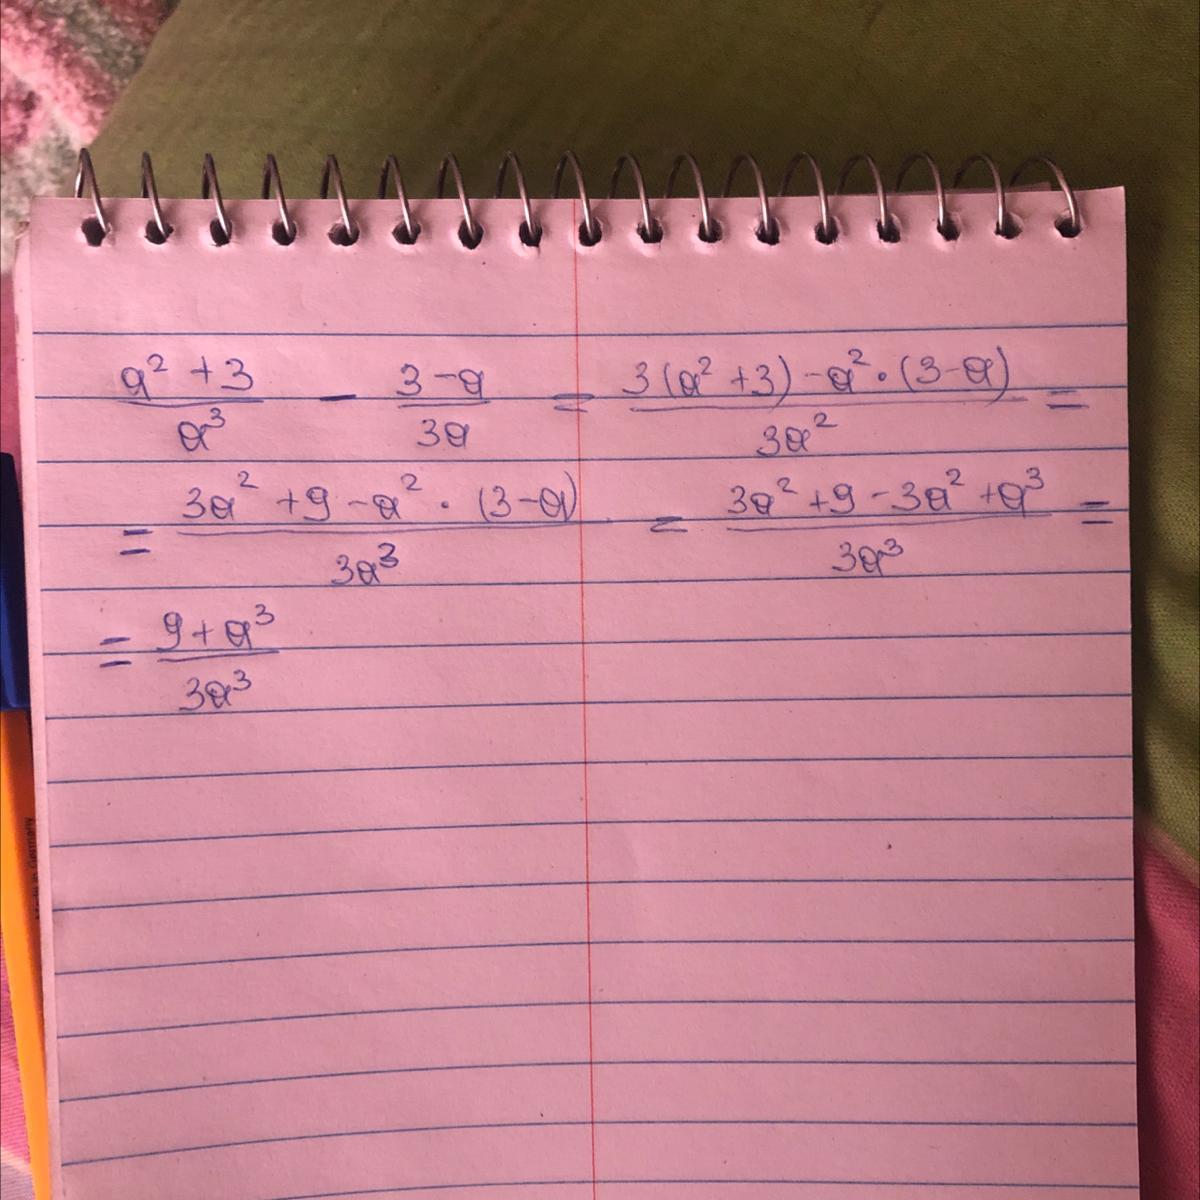 a² + 3 / a³ − 3−a / 3a = 3(a² +3) −a² · (3−a) / 3a² =
= 3a² +9 −a² · (3−a) / 3a³ = 3a² +9 −3a² +a³ / 3a³ =
= 9+a³ / 3a³